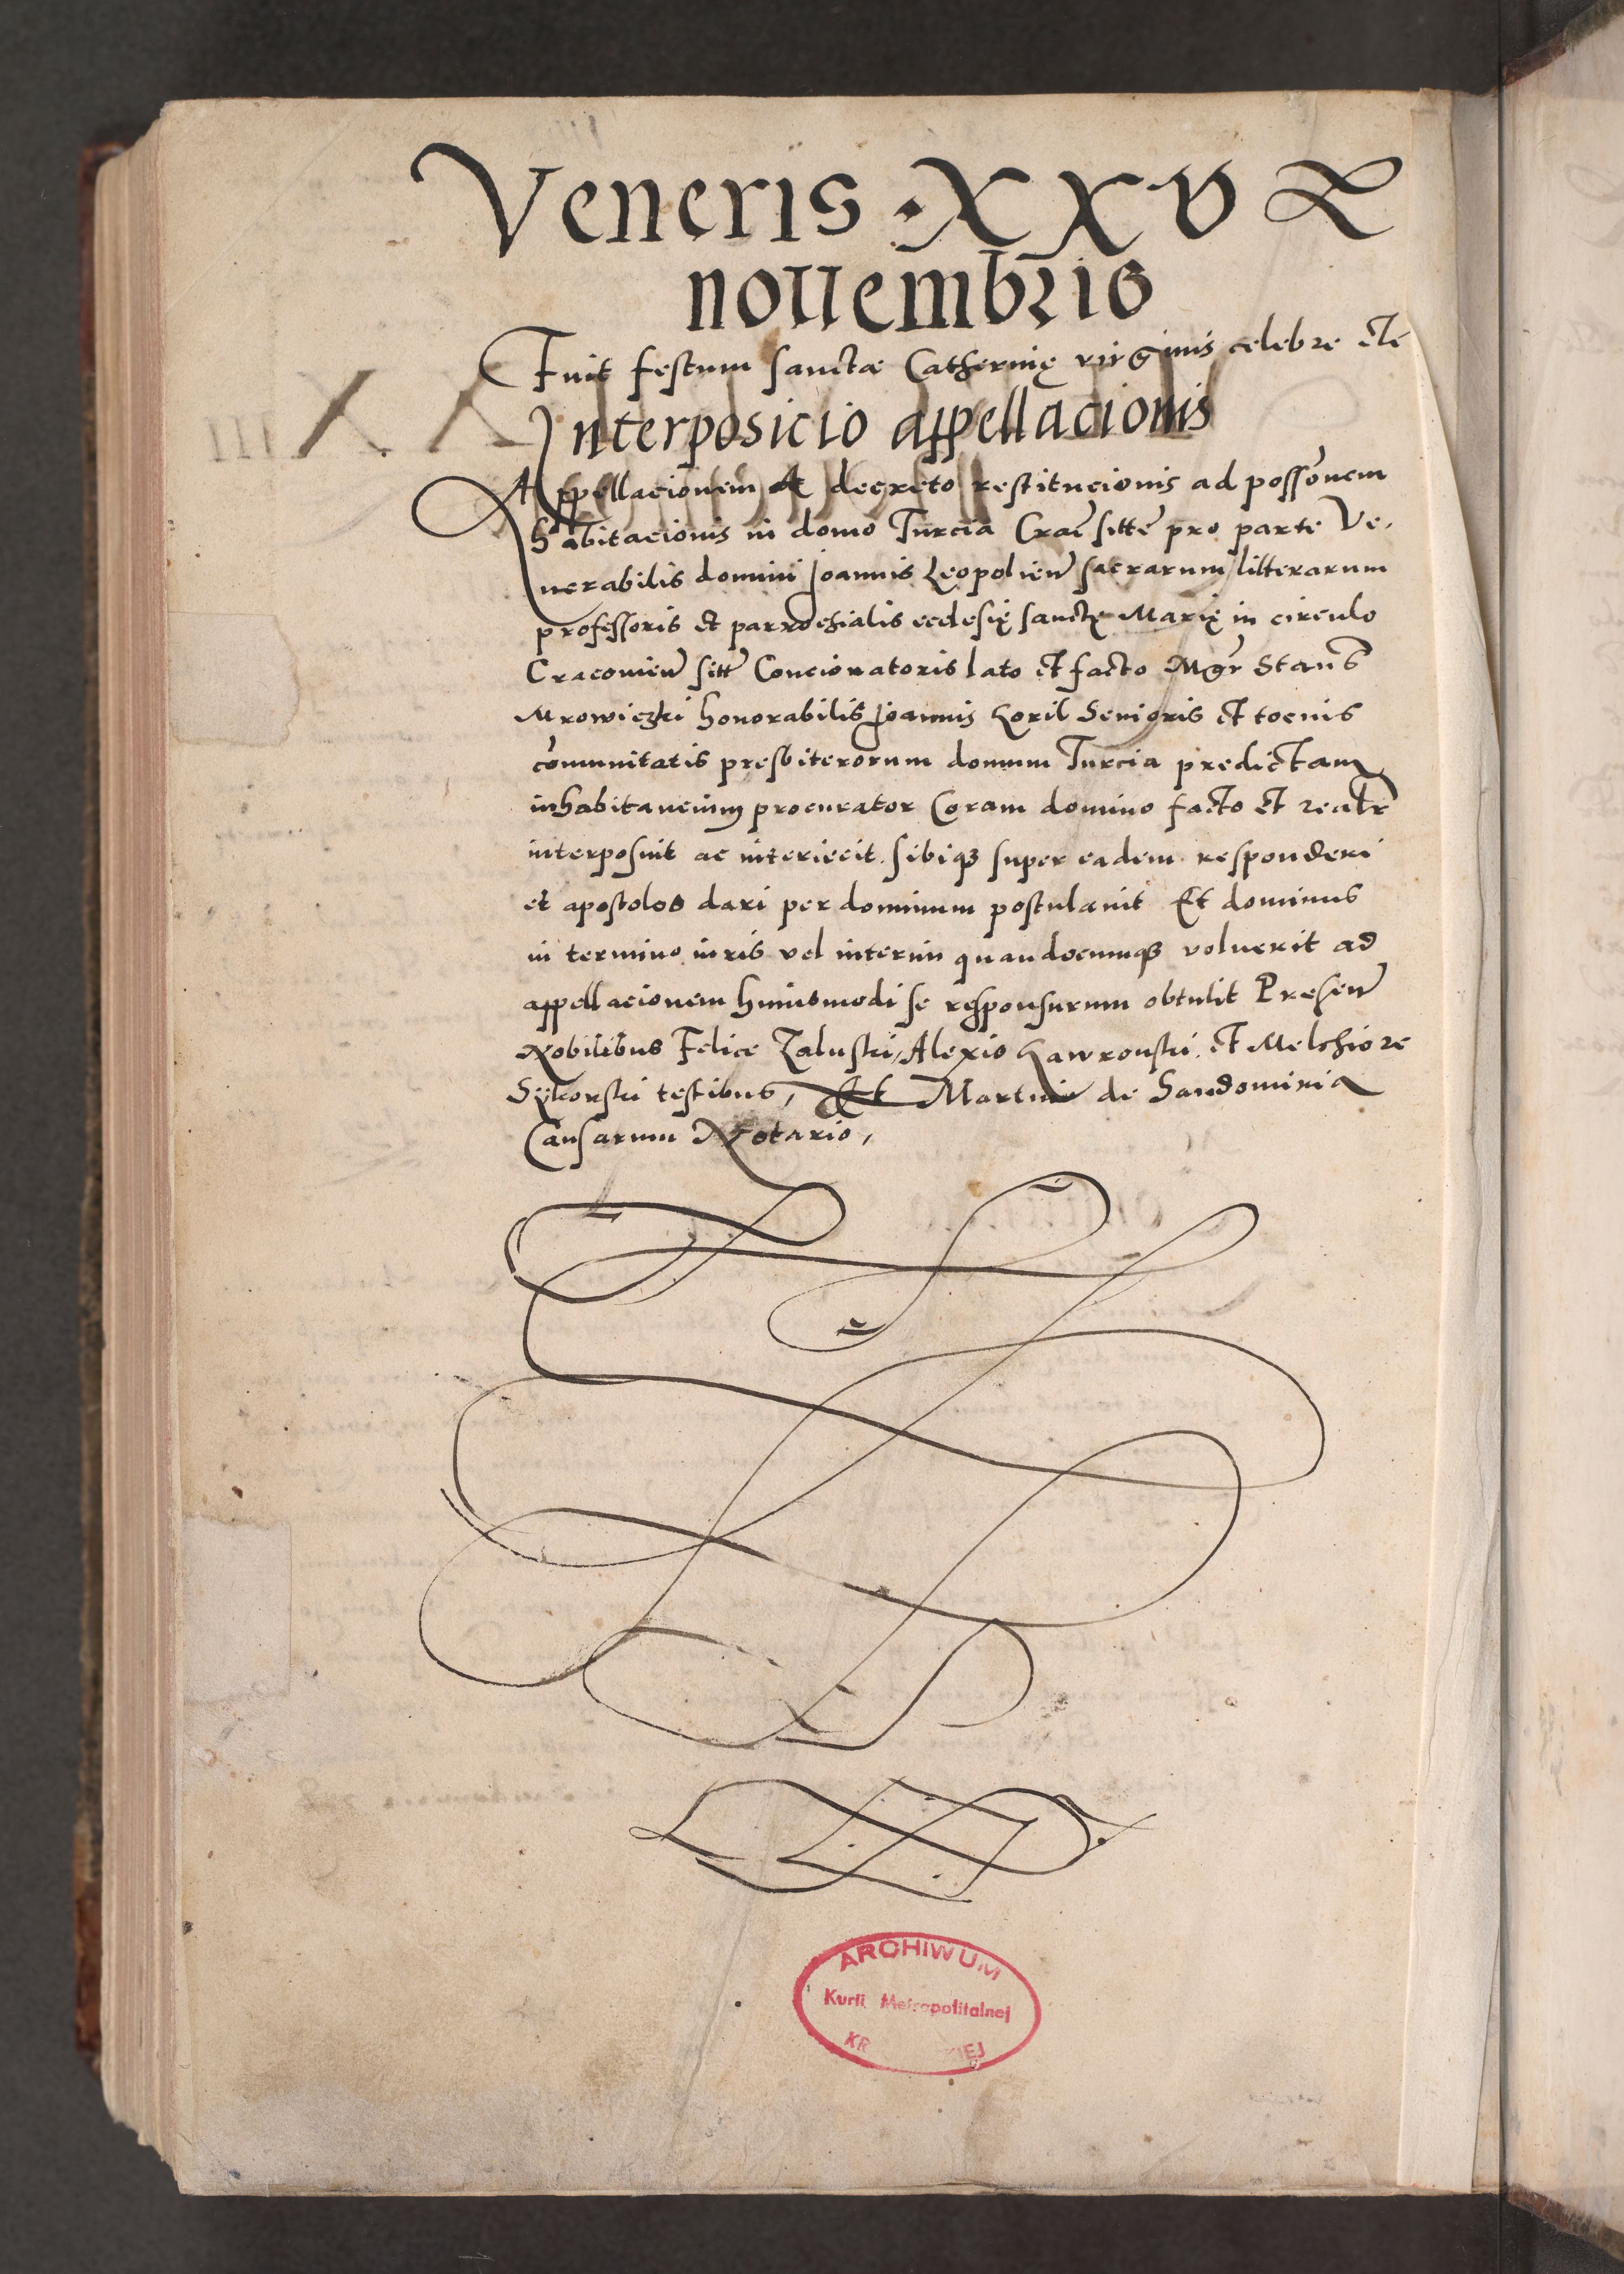 Veneris · XXV
nouembris
Fuit festum sanctæ Catherinę virginis celebre
Interposicio appellacionis
Appellacionem A decreto restitucionis ad possonem
habitacionis in domo Turcia Crac̃ sitte pro parte Ve,
nerabilis domini Joannis Leopolien̄ sacrarum litterarum
professoris et parrochialis ecclesię sanctę Marię in circulo
Cracovien̄ sitt̃ Concionatoris lato et facto Mgr̃ Stans̃
Mrowiczki honorabilis Joannis Koril Senioris et tocius
cōmunitatis presbiterorum domum Turcia predictam
inhabitancium procurator Coram domino facto et realr̃
interposuit ac interiecit. sibiqz super eadem responderi
et apostolos dari per dominum postulauit Et dominus
in termino iuris vel interim quandocumqz voluerit ad
appellacionem huiusmodi se responsurum obtulit Presen̄
Nobilibus Felice Zaluski, Alexio Gawronski. et Melchiore
Sykorski testibus, Et Martino de Sandomiria
Causarum Notario,
ARCHIWUM
Kurii Metropolitalnej